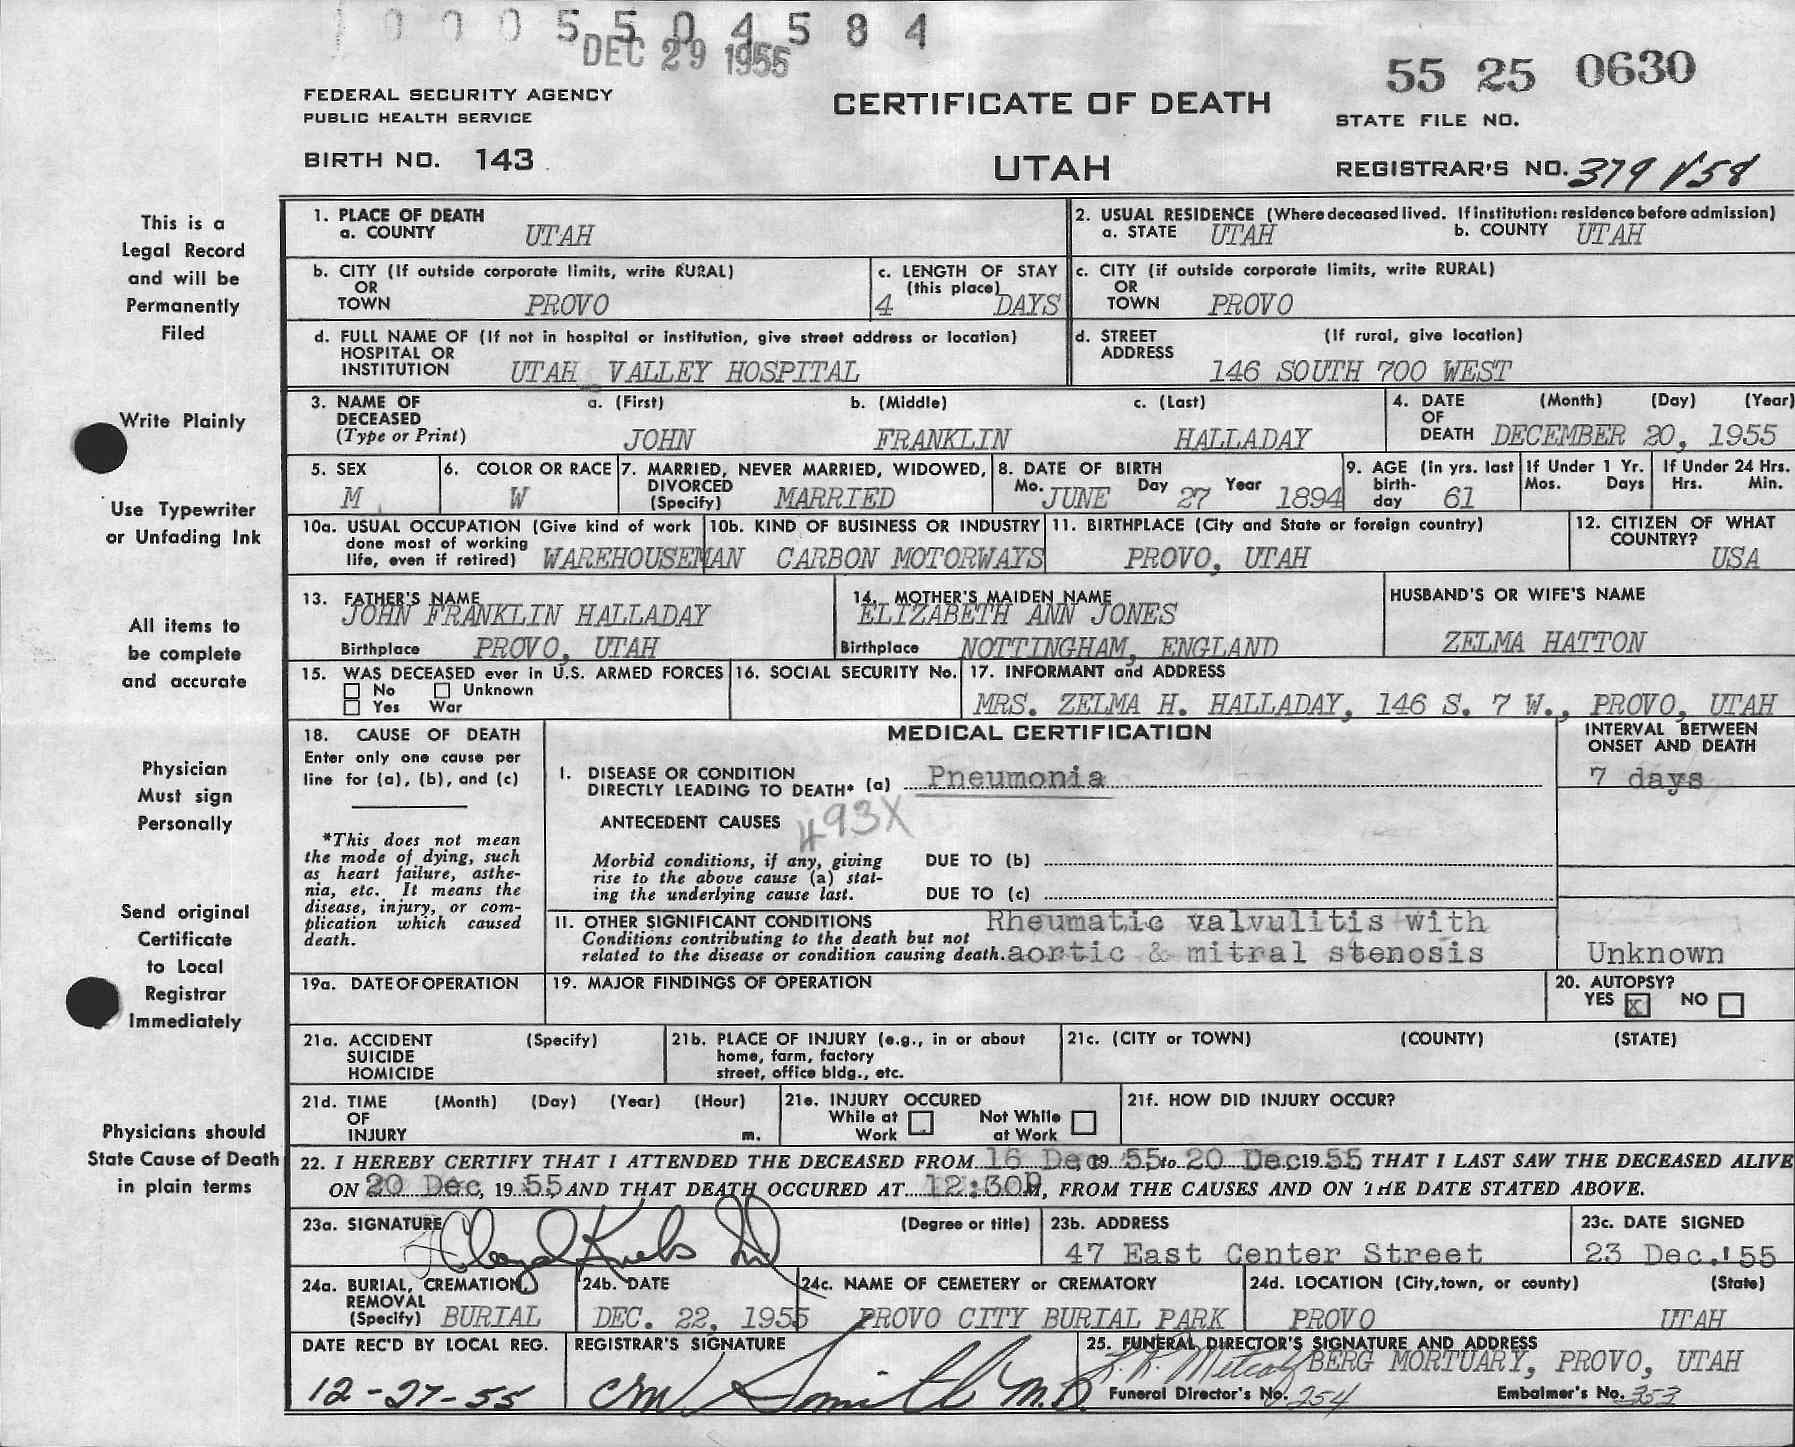 1 0 0 0 5 5 0 4 5 8 4
DEC 29 1955
55 25 0630
FEDERAL SECURITY AGENCY
PUBLIC HEALTH SERVICE
CERTIFICATE OF DEATH
STATE FILE NO.
BIRTH NO. 143
UTAH
REGISTRAR'S NO. 379 158
This is a
Legal Record
and will be
Permanently
Filed
Write Plainly
Use Typewriter
or Unfading Ink
All items to
be complete
and accurate
Physician
Must sign
Personally
Send original
Certificate
to Local
Registrar
Immediately
Physicians should
State Cause of Death
in plain terms
1. PLACE OF DEATH
a. COUNTY UTAH
2. USUAL RESIDENCE (Where deceased lived. If institution: residence before admission)
a. STATE UTAH b. COUNTY UTAH
b. CITY (If outside corporate limits, write RURAL)
OR
TOWN PROVO
c. LENGTH OF STAY
(this place)
4 DAYS
c. CITY (if outside corporate limits, write RURAL)
OR
TOWN PROVO
d. FULL NAME OF (If not in hospital or institution, give street address or location)
HOSPITAL OR
INSTITUTION UTAH VALLEY HOSPITAL
d. STREET (If rural, give location)
ADDRESS
146 SOUTH 700 WEST
3. NAME OF a. (First) b. (Middle) c. (Last)
DECEASED
(Type or Print) JOHN FRANKLIN HALLADAY
4. DATE (Month) (Day) (Year)
OF
DEATH DECEMBER 20, 1955
5. SEX
M
6. COLOR OR RACE
W
7. MARRIED, NEVER MARRIED, WIDOWED,
DIVORCED
(Specify) MARRIED
8. DATE OF BIRTH
Mo. JUNE Day 27 Year 1894
9. AGE (in yrs. last
birth-
day 61
If Under 1 Yr.
Mos. Days
If Under 24 Hrs.
Hrs. Min.
10a. USUAL OCCUPATION (Give kind of work
done most of working
life, even if retired) WAREHOUSEMAN
10b. KIND OF BUSINESS OR INDUSTRY
CARBON MOTORWAYS
11. BIRTHPLACE (City and State or foreign country)
PROVO, UTAH
12. CITIZEN OF WHAT
COUNTRY?
USA
13. FATHER'S NAME
JOHN FRANKLIN HALLADAY
Birthplace PROVO, UTAH
14. MOTHER'S MAIDEN NAME
ELIZABETH ANN JONES
Birthplace NOTTINGHAM, ENGLAND
HUSBAND'S OR WIFE'S NAME
ZELMA HATTON
15. WAS DECEASED ever in U.S. ARMED FORCES
No Unknown
Yes War
16. SOCIAL SECURITY No.
17. INFORMANT and ADDRESS
MRS. ZELMA H. HALLADAY, 146 S. 7 W., PROVO, UTAH
18. CAUSE OF DEATH
Enter only one cause per
line for (a), (b), and (c)
*This does not mean
the mode of dying, such
as heart failure, asthe-
nia, etc. It means the
disease, injury, or com-
plication which caused
death.
MEDICAL CERTIFICATION
INTERVAL BETWEEN
ONSET AND DEATH
I. DISEASE OR CONDITION
DIRECTLY LEADING TO DEATH* (a) Pneumonia
7 days
ANTECEDENT CAUSES 493X
Morbid conditions, if any, giving
rise to the above cause (a) stat-
ing the underlying cause last.
DUE TO (b)
DUE TO (c)
II. OTHER SIGNIFICANT CONDITIONS
Conditions contributing to the death but not
related to the disease or condition causing death.
Rheumatic valvulitis with
aortic & mitral stenosis
Unknown
19a. DATE OF OPERATION
19. MAJOR FINDINGS OF OPERATION
20. AUTOPSY?
YES X NO
21a. ACCIDENT (Specify)
SUICIDE
HOMICIDE
21b. PLACE OF INJURY (e.g., in or about
home, farm, factory
street, office bldg., etc.
21c. (CITY or TOWN) (COUNTY) (STATE)
21d. TIME (Month) (Day) (Year) (Hour)
OF
INJURY m.
21e. INJURY OCCURED
While at Work
Not While at Work
21f. HOW DID INJURY OCCUR?
22. I HEREBY CERTIFY THAT I ATTENDED THE DECEASED FROM 16 Dec 19 55 to 20 Dec 19 55 THAT I LAST SAW THE DECEASED ALIVE
ON 20 Dec, 19 55 AND THAT DEATH OCCURED AT 12:30P M, FROM THE CAUSES AND ON THE DATE STATED ABOVE.
23a. SIGNATURE (Degree or title)
Cloyd Krebs MD
23b. ADDRESS
47 East Center Street
23c. DATE SIGNED
23 Dec.'55
24a. BURIAL, CREMATION,
REMOVAL
(Specify) BURIAL
24b. DATE
DEC. 22, 1955
24c. NAME OF CEMETERY or CREMATORY
PROVO CITY BURIAL PARK
24d. LOCATION (City, town, or county) (State)
PROVO UTAH
DATE REC'D BY LOCAL REG.
12-27-55
REGISTRAR'S SIGNATURE
C M Smith M.D.
25. FUNERAL DIRECTOR'S SIGNATURE AND ADDRESS
Metcalf BERG MORTUARY, PROVO, UTAH
Funeral Director's No. 254 Embalmer's No. 353